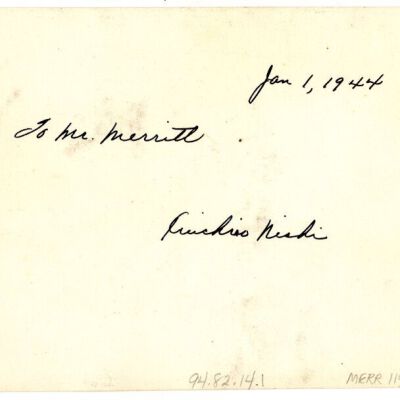 Jan 1, 1944
To Mr. Merritt
Kuichiro Nishi
94.82.14.1
MERR 11